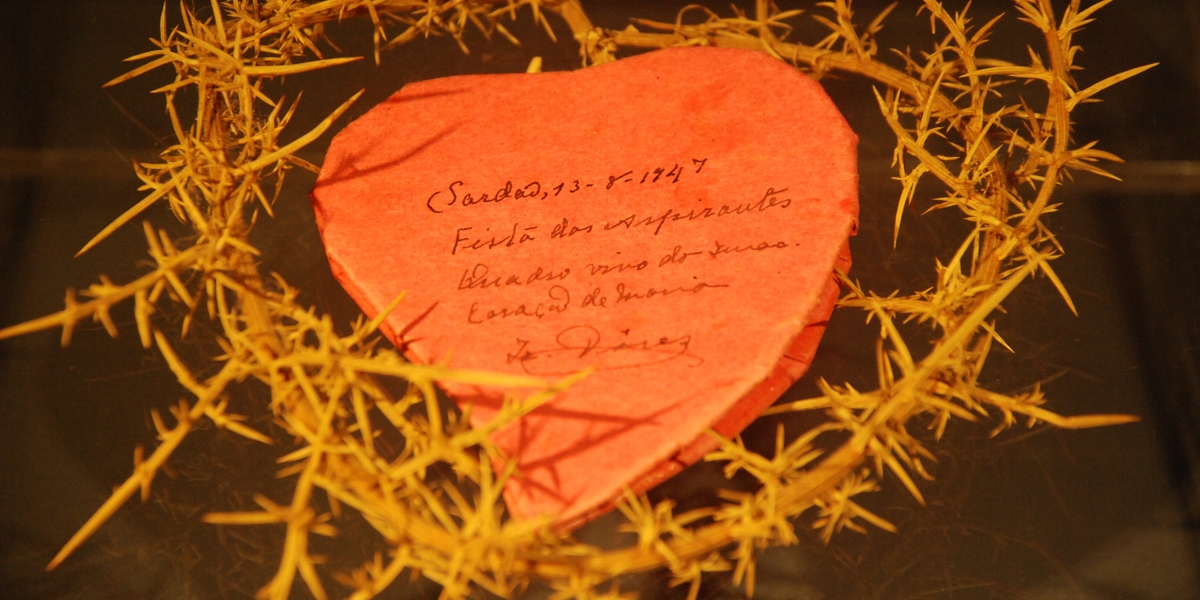 Sardaõ, 13-8-1947
Festã das Aspirantes
Quadro vivo do Imac.
Coração de Maria